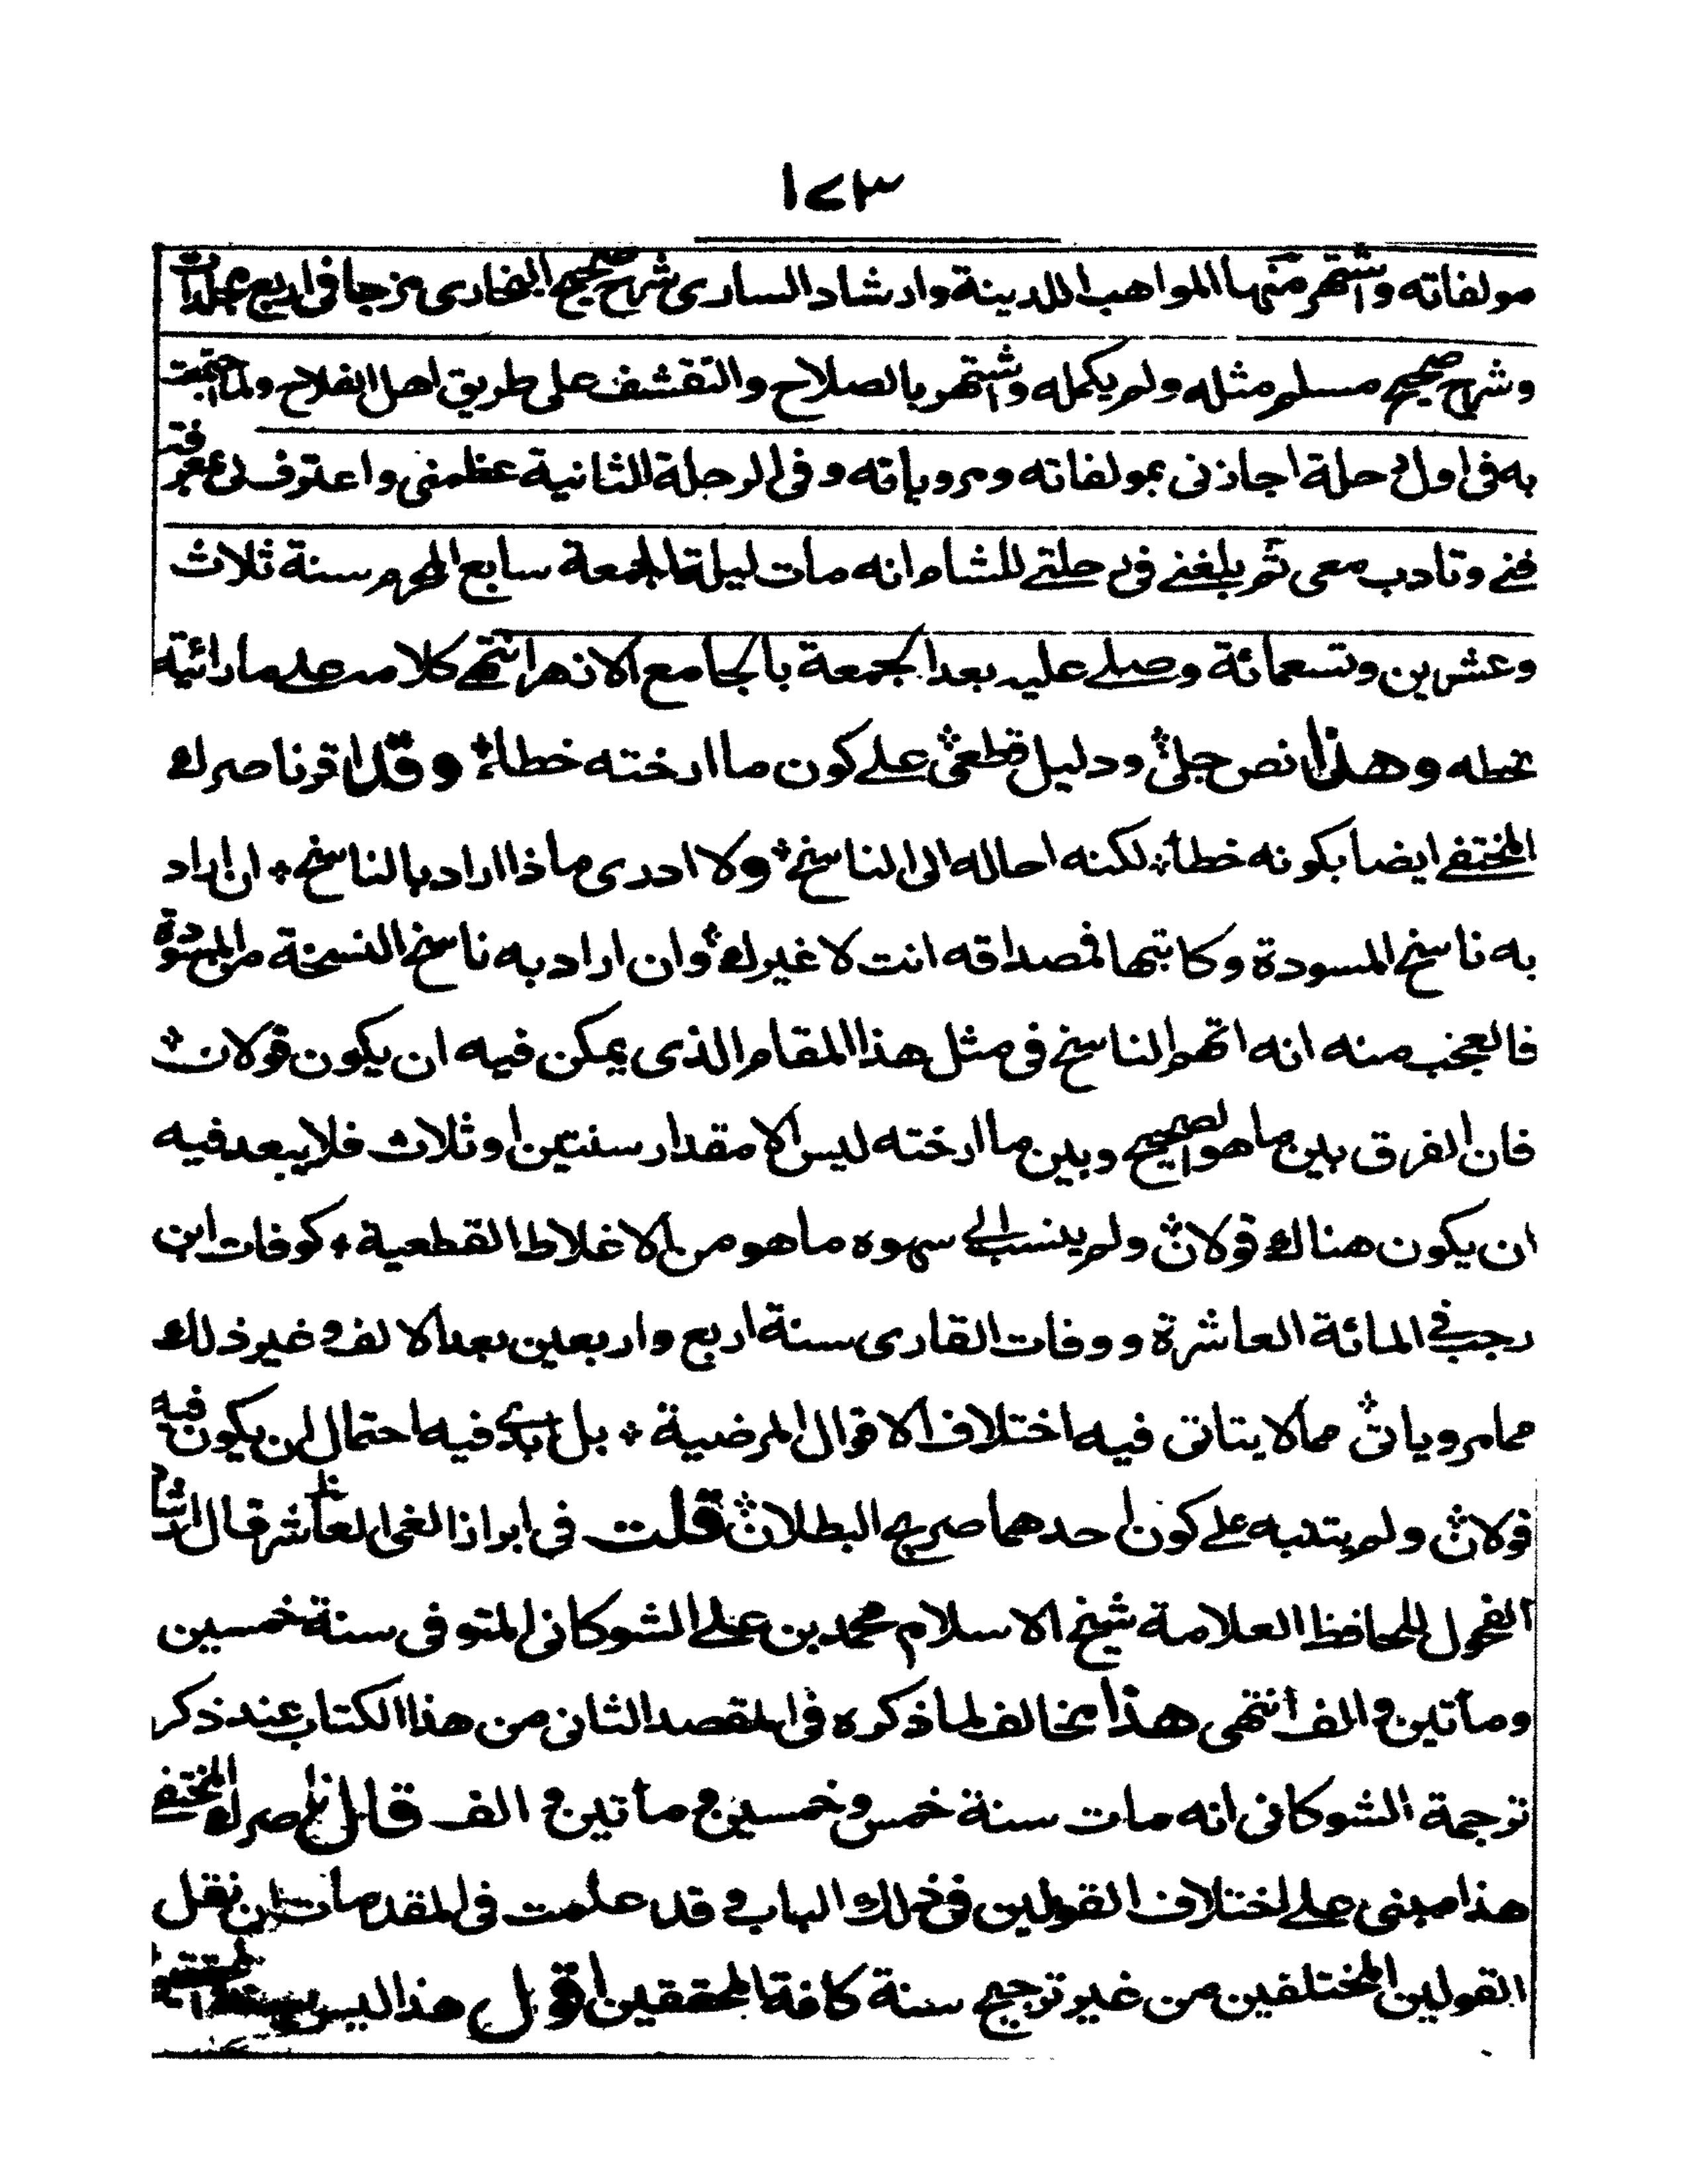 ١٢٣
مولفاته واشتهر منها المواهب اللدينة وارشاد السارى شرح صحيح البخارى مزجا فى اربع مجلدات
وشرح صحيح مسلم مثله ولم يكمله واشتهر بالصلاح والتقشف على طريق اهل الفلاح ولما اجتمعت
به فى اول رحلة اجازنى بمولفاته ومروياته وفى الرحلة الثانية عظمنى واعترف لى بمعرفته
فنے وتادب معى ثم بلغنے فى رحلتے للشام انه مات ليلة الجمعة سابع المحرم سنة ثلاث
وعشرين وتسعمائة وصلے عليه بعد الجمعة بالجامع الازهر انتهى كلامه علے ما رائية
بخطه وهذا نص جلى ودليل قطعى علے كون ما ارخته خطاء وقد اقر ناصرك
المختفے ايضا بكونه خطأ لكنه احاله الى الناسخ ولا ادرى ماذا اراد بالناسخ ان اراد
به ناسخ المسودة وكاتبها فمصداقه انت لا غيرك وان اراد به ناسخ النسخة من المسودة
فالعجب منه انه اتهم الناسخ فى مثل هذا المقام الذى يمكن فيه ان يكون قولان
فان الفرق بين ما هو الصحيح وبين ما ارخته ليس الا مقدار سنتين او ثلاث فلا يبعد فيه
ان يكون هناك قولان ولم ينسب الے سهوه ما هو من الاغلاط القطعية كوفات ابن
رجب فى المائة العاشرة ووفات القارى سنة اربع واربعين بعد الالف وغير ذلك
مما مر ويأتى مما لا يتاتى فيه اختلاف الاقوال المرضية بل ابدے فيه احتمال ان يكون فيه
قولان ولم يتنبه علے كون احدهما صريح البطلان قلت فى ابراز الغى العاشر قال
الفحول الحافظ العلامة شيخ الاسلام محمد بن علے الشوكانى المتوفى سنة خمسين
ومأتين والف انتهى هذا مخالف لما ذكره فى المقصد الثانى من هذا الكتاب عند ذكر
ترجمة الشوكانى انه مات سنة خمس وخمسين ومأتين والف قال ناصرك المختفے
هذا مبنى علے اختلاف القولين فى ذلك الباب وقد علمت فى المقدمات ان نقل
القولين المختلفين من غير ترجيح سنة كافة المحققين اقول هذا ليس